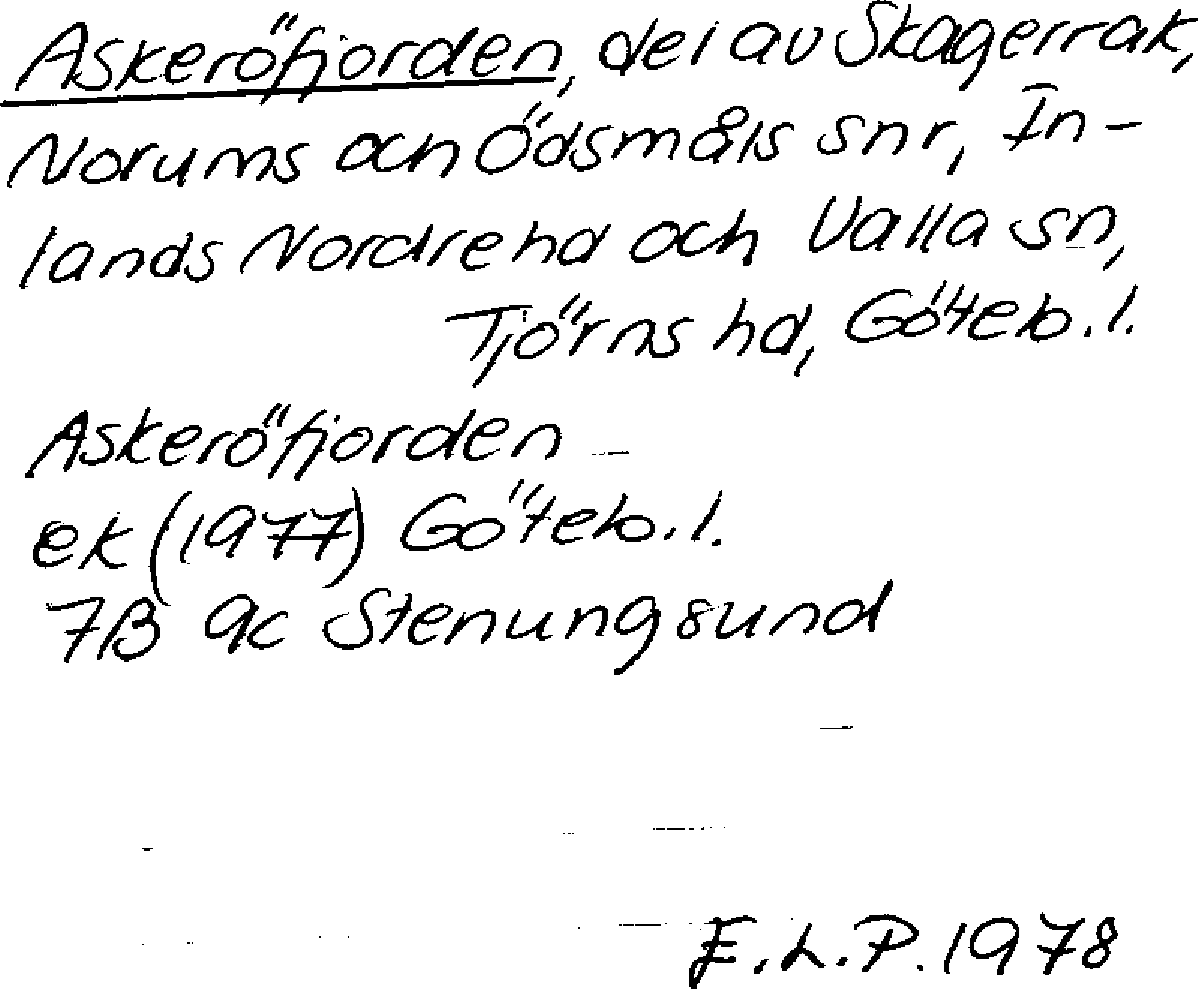 Askeröfjorden, del av Skagerrak,
Norums och Ödsmåls snr, In-
lands Nordre hd och Valla sn,
Tjörns hd, Göteb. l.
Askeröfjorden
ek (1977) Göteb. l.
7B 9c Stenungsund
E.L.P. 1978